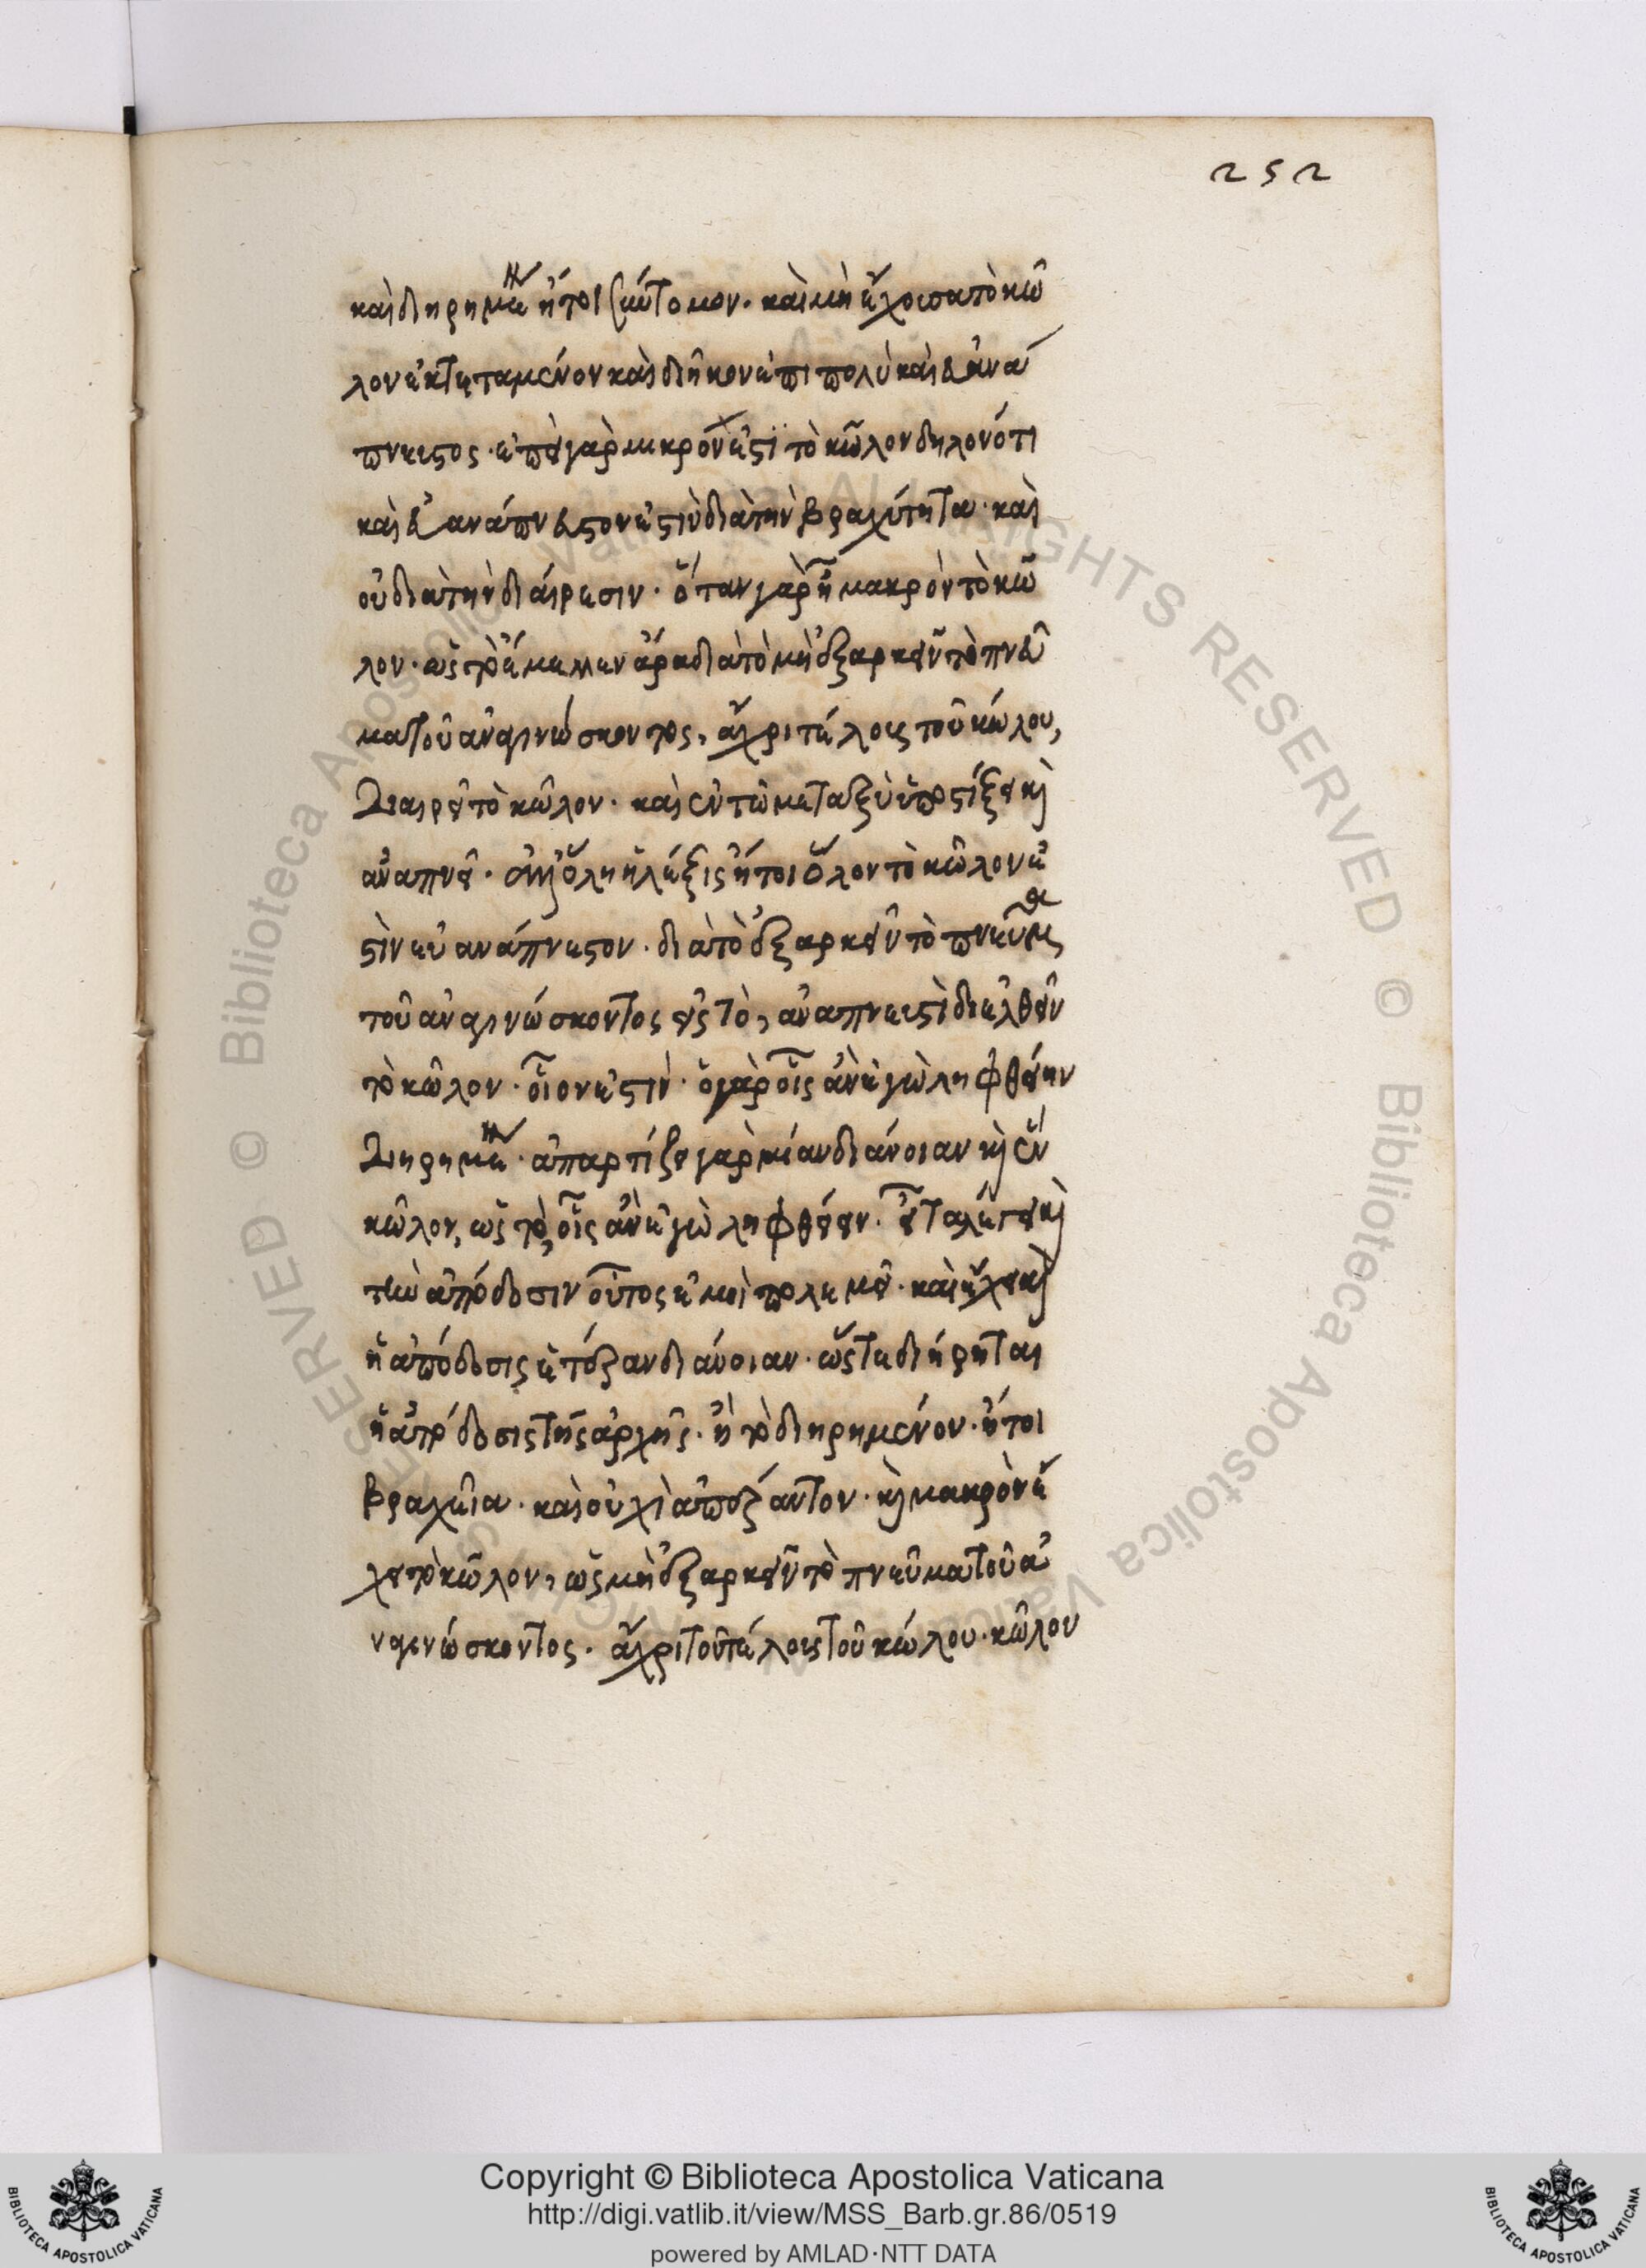 252
καὶ διῃρημένη ἤτοι σύντομον. καὶ μὴ ἔχουσα τὸ κῶ
λον ἐκτεταμένον καὶ διῆκον ἐπι πολὺ καὶ εὐανά
πνευστος. ἐπεὶ γὰρ μικρόν ἐστὶ τὸ κῶλον δηλονότι
καὶ εὐανάπνευστον ἐστὶ διὰ τὴν βραχύτητα. καὶ
οὐ διὰ τὴν διαίρεσιν. ὅταν γὰρ ᾖ μακρὸν τὸ κῶ
λον. ὡς τὸ ἔμελλεν ἄρα διὰ τὸ μὴ ἐξαρκεῖν τὸ πνεῦ
μα τοῦ ἀναγινώσκοντος, ἄχρι τέλους τοῦ κώλου,
διαιρεῖ τὸ κῶλον. καὶ ἐν τῶ μεταξὺ ὑποστίξει καὶ
ἀναπνεῖ. ὅλη ἡ λέξις ἤτοι ὅλον τὸ κῶλον ἐ
στὶν εὐανάπνευστον. διὰ τὸ ἐξαρκεῖν τὸ πνεῦμα
τοῦ ἀναγινώσκοντος εἰς τὸ, ἀναπνευστὶ διελθεῖν
τὸ κῶλον. οἷον ἐστὶν. ὁ γὰρ οἷς ἂν ἐγὼ ληφθείην
διῃρημένη. ἀπαρτίζει γὰρ μίαν διάνοιαν καὶ ἓν
κῶλον, ὡς τὸ, οἷς ἂν ἐγὼ ληφθείην. εἶτα λείπει καὶ
τὴν ἀπόδοσιν οὗτος ἐμοὶ πολεμεῖ. καὶ ἔχει καὶ
ἡ ἀπόδοσις ἐτέραν διάνοιαν. ὥστε διῄρηται
ἡ ἀπόδοσις τῆς ἀρχῆς. ἢ τὸ διῃρημένον. ἤτοι
βραχεῖα. καὶ οὐχὶ ἀπέραντον. καὶ μακρὸν ἔ
χει τὸ κῶλον, ὡς μὴ ἐξαρκεῖν τὸ πνεῦμα τοῦ ἀ
ναγινώσκοντος. ἄχρι τοῦ τέλους τοῦ κώλου. κῶλον
Copyright © Biblioteca Apostolica Vaticana
http://digi.vatlib.it/view/MSS_Barb.gr.86/0519
powered by AMLAD·NTT DATA